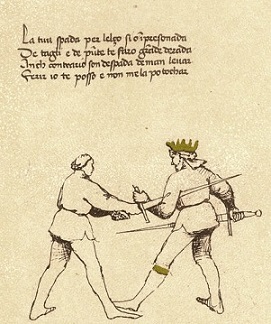 La tua spada per lelço si o inpresonada
De tagli e de pūte te farò grāde derada
contrario despada de man levar
Ferir io te posso e non me la po tochar